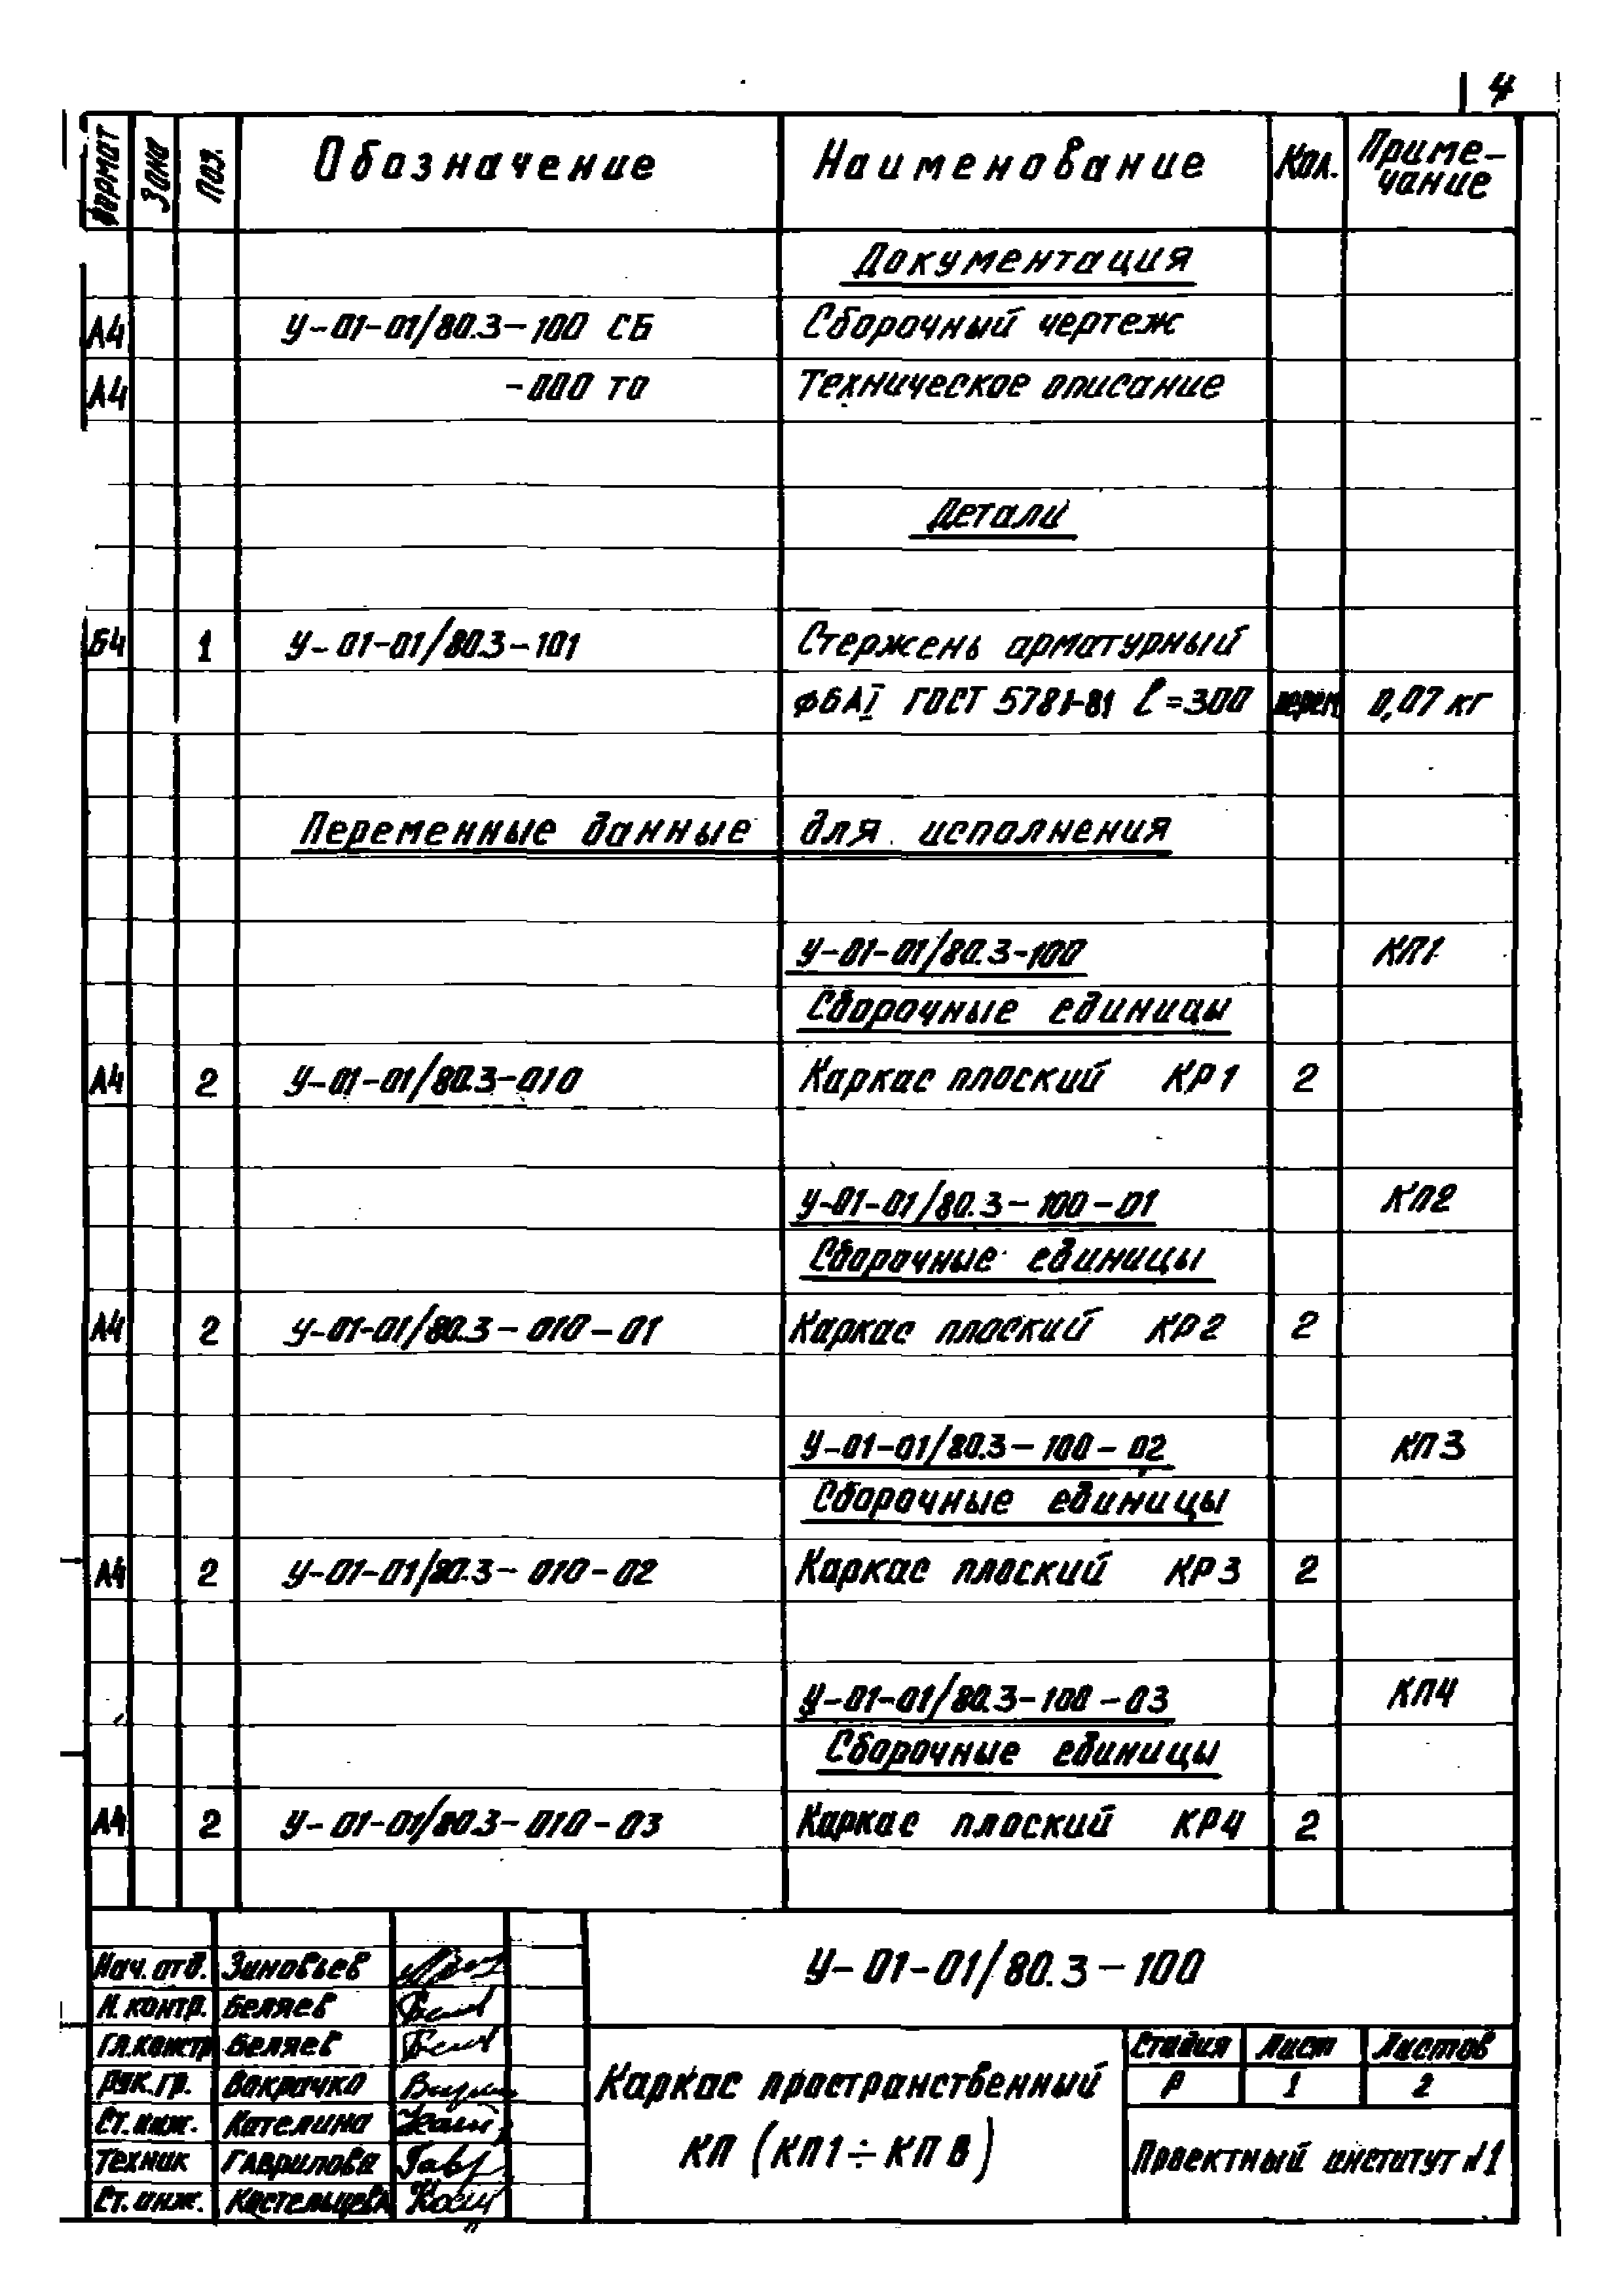 4
Формат Зона Поз. Обозначение Наименование Кол. Приме-
чание
Документация
А4 У-01-01/80.3-100 СБ Сборочный чертеж
А4 -000 ТО Техническое описание
Детали
Б4 1 У-01-01/80.3-101 Стержень арматурный
ф6АI ГОСТ 5781-81 ℓ=300 перем 0,07 кг
Переменные данные для исполнения
У-01-01/80.3-100 КП1
Сборочные единицы
А4 2 У-01-01/80.3-010 Каркас плоский КР1 2
У-01-01/80.3-100-01 КП2
Сборочные единицы
А4 2 У-01-01/80.3-010-01 Каркас плоский КР2 2
У-01-01/80.3-100-02 КП3
Сборочные единицы
А4 2 У-01-01/80.3-010-02 Каркас плоский КР3 2
У-01-01/80.3-100-03 КП4
Сборочные единицы
А4 2 У-01-01/80.3-010-03 Каркас плоский КР4 2
Нач. отд. Зиновьев
Н. контр. Беляев
Гл.констр Беляев
Рук. гр. Вакрачко
Ст. инж. Кателина
Техник Гаврилова
Ст. инж.
У-01-01/80.3-100
Каркас пространственный
КП (КП1÷КП 8)
Стадия Лист Листов
Р 1 2
Проектный институт №1